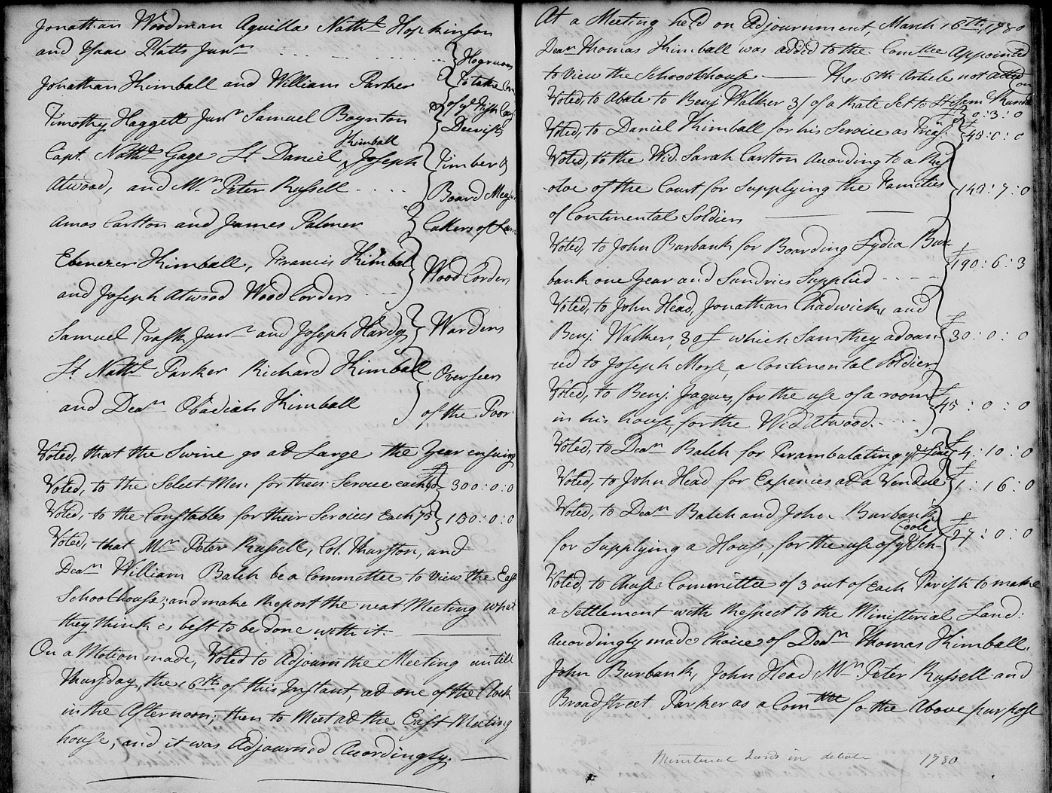 Jonathan Woodman Aquilla Nathl. Hopkinson
and Isaac Platts Junr.
Hogreeves
Jonathan Kimball and William Parker
to take Care
of ye Fish Cag
Timothy Haggett Junr Samuel Boynton
Deerifs
Capt. Nathl. Gage Lt. Daniel Kimball Joseph
Timber &
Atwood, and Mr. Peter Russell
Board Meas
Amos Carlton and James Palmer
Cullers of
Ebenezer Kimball, Francis Kimball
Wood Corders
and Joseph Atwood Wood Corders
Samuel Trask Junr and Joseph Hardy
Wardens
Lt. Nathl. Parker Richard Kimball
Overseers
and Dean. Obadiah Kimball
of the Poor
Voted, that the Swine go at Large the Year ensuing
Voted, to the Select Men for their Service each £ 300:0:0
Voted, to the Constables for their Services Each 75 150:0:0
Voted, that Mr. Peter Russell, Col. Thurston, and
Dean William Balch be a Committee to view the East
Schoolhouse, and make Report the next Meeting what
they think is best to be done with it.
On a Motion made, Voted to Adjourn the Meeting until
Thursday, the 16th of this Instant, at one of the Clock
in the Afternoon, then to Meet at the East Meeting
house, and it was Adjourned Accordingly.
At a Meeting held on Adjournment, March 16th, 1780
Dean Thomas Kimball was added to the Comtee Appointed
to view the Schoolhouse. The 6th Article not acted
on
Voted, to Abate to Benj. Walker 3/ of a Rate Set to
0:3:0
Voted, to Daniel Kimball for his Service as Treasr. £ 45:0:0
Voted, to the Wid. Sarah Carlton According to a Re
solve of the Court for Supplying the Families 149:7:0
of Continental Soldiers
Voted, to John Burbank for Boarding Lydia Bur
bank one Year and Sundries Supplied £ 190:6:3
Voted, to John Head, Jonathan Chadwick, and
Benj. Walker, 30£ which Sum they advanc £ 30:0:0
ed to Joseph Morse, a Continental Soldier
Voted, to Benj. Jaques, for the use of a room £ 45:0:0
in his house, for the Wid. Atwood.
Voted, to Dean Balch for Perambulating ye Line £ 4:10:0
Voted, to John Head for Expences at a Vendue £ 1:16:0
Voted, to Dean Balch and John Burbank
for Supplying a House, for the use of ye Schoole £ 27:0:0
Voted, to Chuse a Committee of 3 out of Each Parish to make
a Settlement with Respect to the Ministerial Land.
Accordingly made Choice of Dean Thomas Kimball,
John Burbank, John Head Mr. Peter Russell and
Broadstreet Parker as a Comtee for the Above purpose
Ministerial Lands in debate 1780